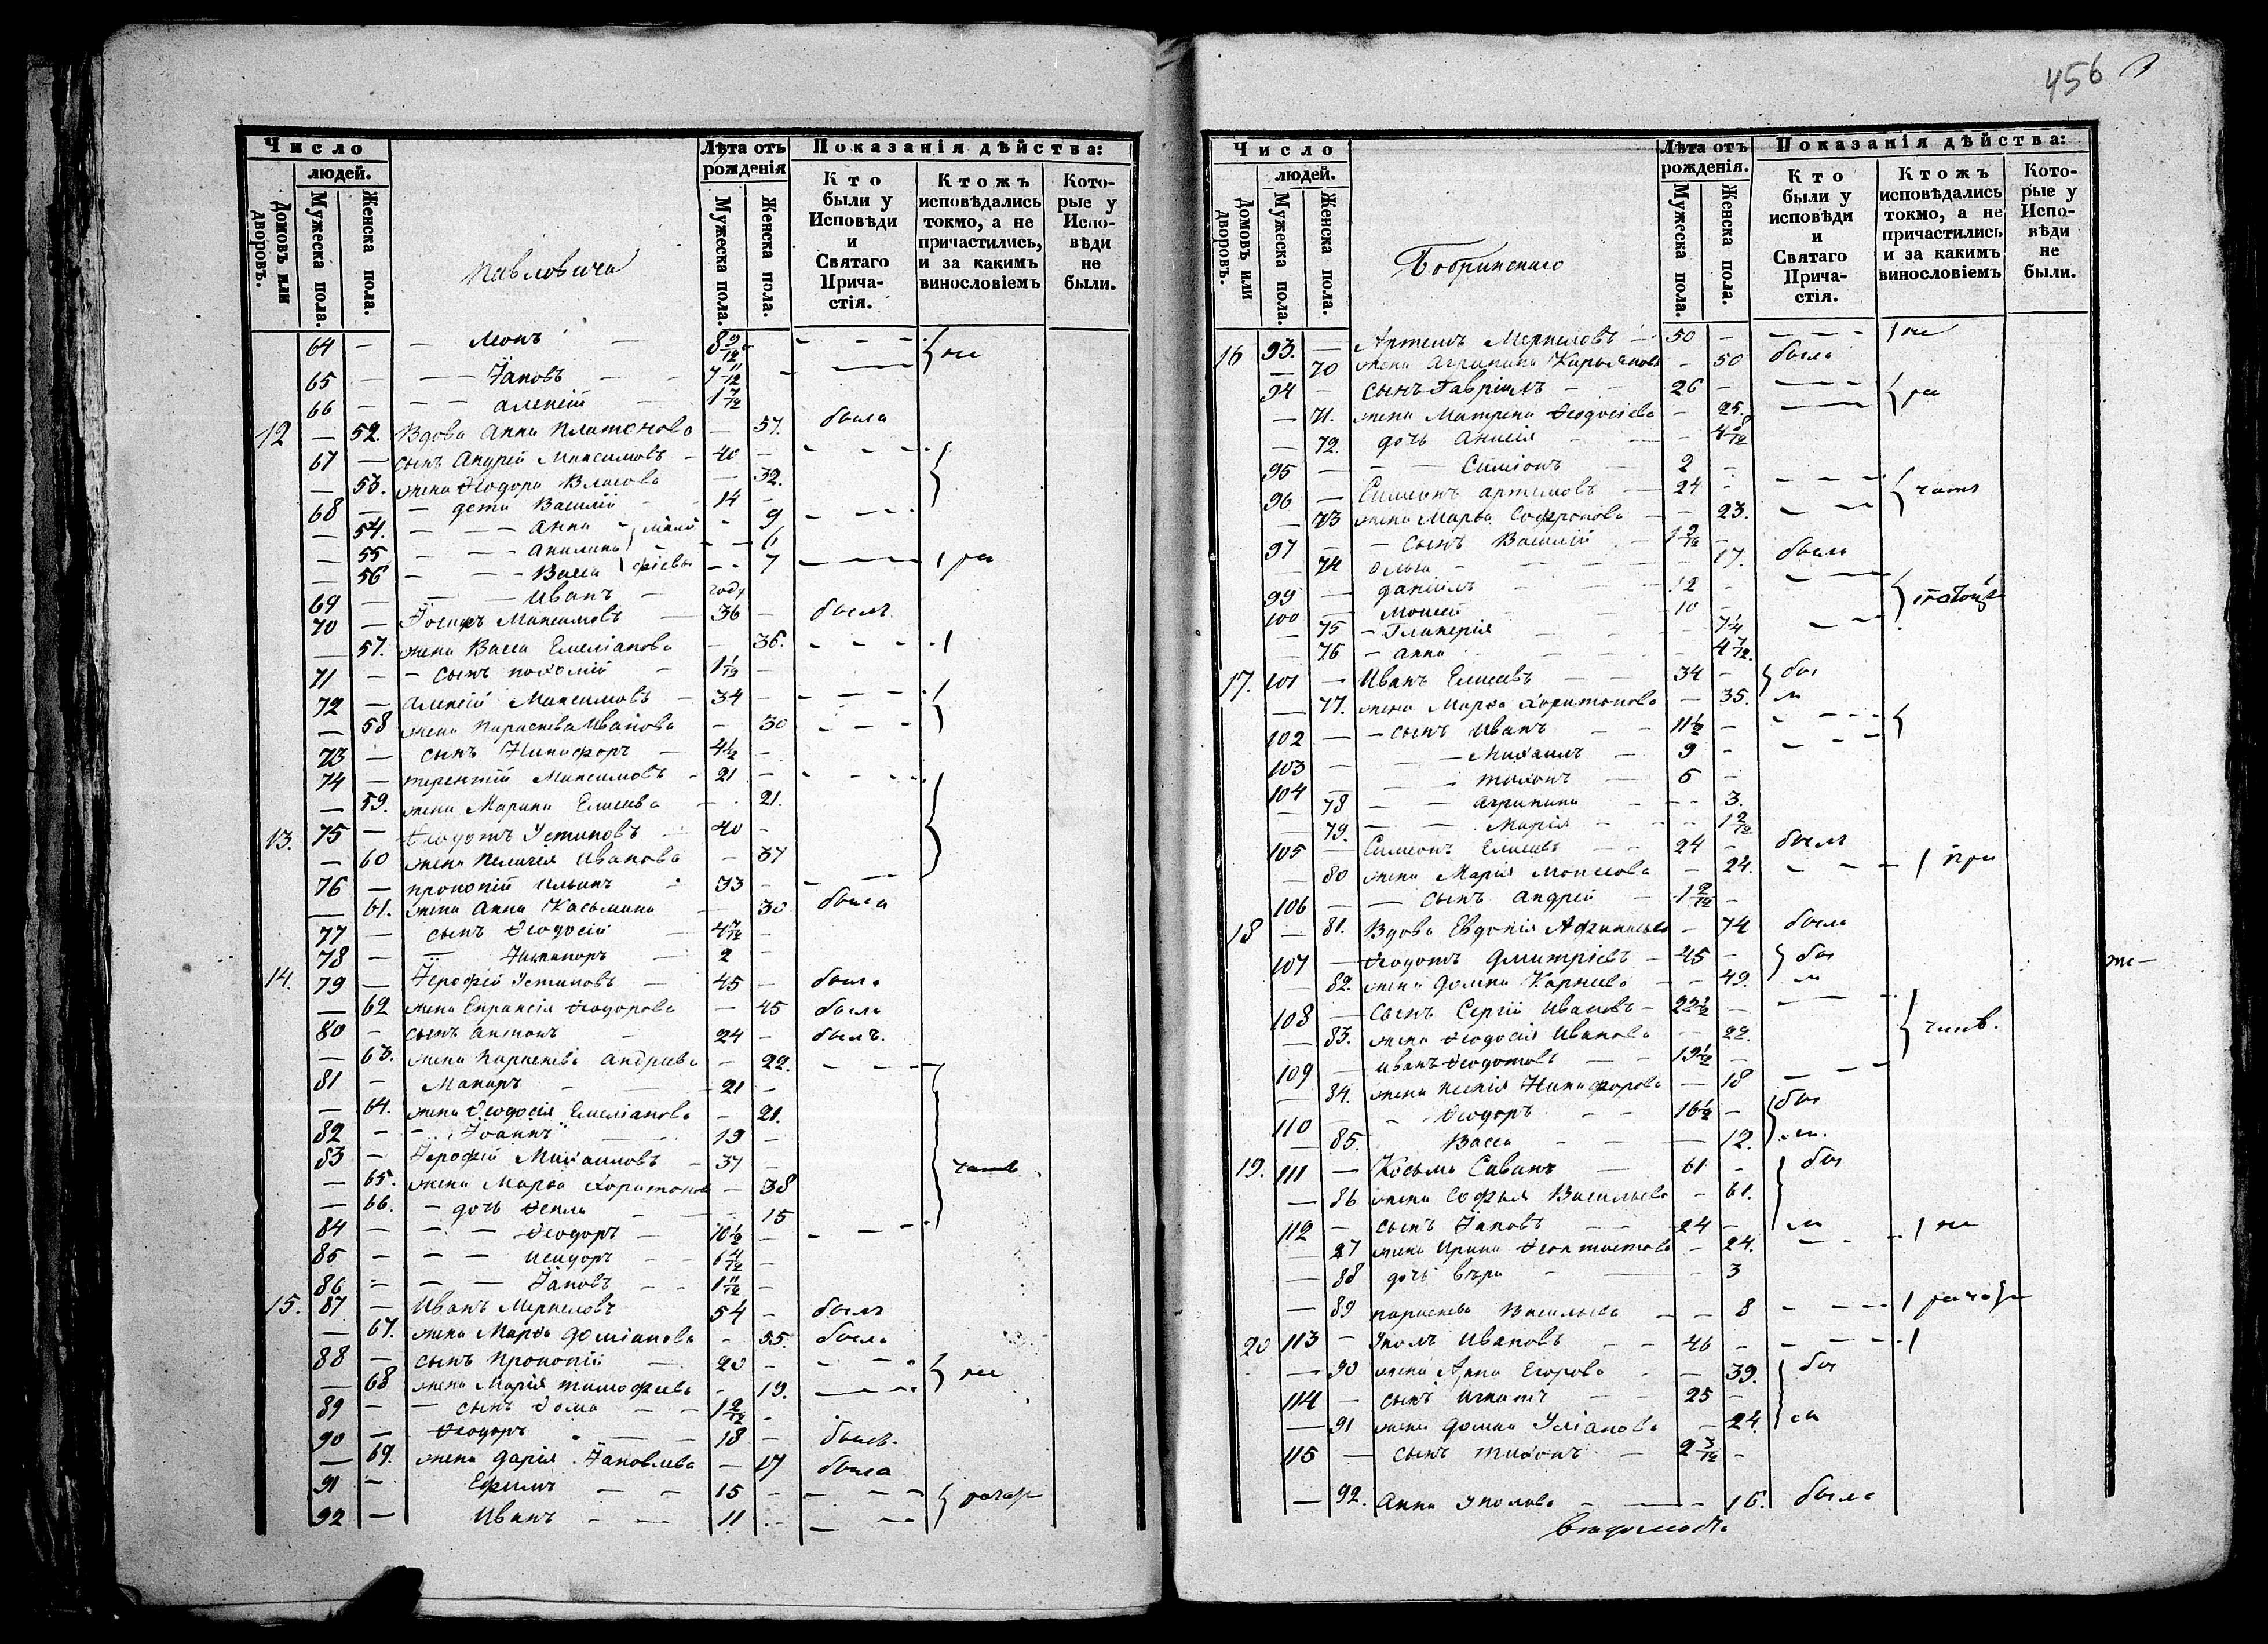 456
Число
людей.
Домовъ или дворовъ.
Мужеска пола.
Женска пола.
Павловича
Лѣта отъ рожденія
Мужеска пола.
Женска пола.
Показанія дѣйства:
Кто были у Исповѣди и Святаго Прича-стія.
Ктожъ исповѣдались токмо, а не причастились, и за какимъ винословіемъ
Кото-рые у Испо-вѣди не были.
64 — — Леонъ — 8 9/12
65 — — — Іаковъ — — 7 11/12
66 — — — Алексій — 1 7/12
12 — 52. Вдова Анна Платонова — 57. была
67 — сынъ Андрей Максимовъ — 40 —
— 53. жена Ѳеодора Власова — 32.
68 — — дети Василій — 14 —
— 54. — — — Анна — 9
— 55 — — — Акилина — 6
— 56 — — — Васса — 7
69 — — — Иванъ — году
70 — Іосифъ Максимовъ — 36 — былъ
— 57. жена Васса Емеліанова — 36.
71 — — сынъ Пахомій — 1 1/12
72 — Алексій Максимовъ — 34 —
— 58 жена Параскева Иванова — 30
73 — сынъ Никифоръ — 4 1/2 —
74 — Терентій Максимовъ — 21 —
— 59. жена Марина Елисева — 21.
13. 75 — Ѳеодотъ Устиновъ — 40 —
— 60 жена Пелагея Иванова — 37
76 — Прокопій Ильинъ — 33 —
— 61. жена Анна Касьмина — 30 была
77 — сынъ Ѳеодосій — 4 7/12 —
78 — — Никаноръ — 2 —
14. 79 — Іерофей Устиновъ — 45 — былъ
— 62 жена Евпраксія Ѳеодорова — 45 была
80 — сынъ Антонъ — 24 — былъ.
— 63. жена Параскева Андреева — 22.
81 — Макаръ — 21 —
— 64. жена Ѳеодосія Емеліанова — 21.
82 — — Іоаннъ — 19 —
83 — Іерофей Михаиловъ — 37 —
— 65. жена Марѳа Харитонова — 38
— 66. — дочь Ѳекла — 15
84 — — — Ѳеодоръ — 10 1/2 —
85 — — — Исидоръ — 6 4/12 —
86 — — — Іаковъ — 1 11/12 —
15. 87 — Иванъ Меркеловъ 54 — былъ
— 67. жена Марѳа Доміанова — 55. была
88 — сынъ Прокопій — 20 —
— 68 жена Марія Тимофеева — 19.
89 — — сынъ Ѳома — 1 2/12 —
90 — Ѳеодоръ — 18 — былъ.
— 69. жена Дарія Іаковлева — 17 была
91 — Ефимъ — 15 —
92 — Иванъ — 11 —
Число
людей.
Домовъ или дворовъ.
Мужеска пола.
Женска пола.
Бобринскаго
Лѣта отъ рожденія.
Мужеска пола.
Женска пола.
Показанія дѣйства:
Кто были у исповѣди и Святаго Прича-стія.
Ктожъ исповѣдались токмо, а не причастились и за какимъ винословіемъ
Кото-рые у Испо-вѣди не были.
16 93. — Артемъ Меркеловъ — 50 —
— 70 жена Агрипина — 50 была
94 — сынъ Гавріилъ — 26 —
— 71. жена Матрена Ѳеодосіева — 25.
— 72. дочь Анисія — 4 8/12
95 — — — Симіонъ 2 —
96 — Симеонъ Артемовъ — 24 —
— 73 жена Марѳа Софронова — 23.
97 — — сынъ Василій — 1 2/12 —
— 74 Ольга — 17. была
99 — Даніилъ — 12 —
100 — Моисей — 10 —
— 75 — Гликерія — 7 1/4
— 76 — Анна — 4 7/12.
17. 101 — Иванъ Елисевъ — 34 —
— 77. жена Марѳа Харитонова — 35.
102 — — сынъ Иванъ — 11 1/2 —
103 — — — Михаилъ — 9 —
104 — — — Тихонъ — 6 —
— 78 — — Агрипина — 3.
— 79. — — Марія — 1 2/12
105 — Симеонъ Елисевъ — 24 — былъ
— 80 жена Марія Моисеева — 24.
106 — — сынъ Андрей — 1 2/12 —
18 — 81. Вдова Евдокія — 74 была
107 — Ѳеодотъ Дмитріевъ — 45 —
— 82. жена Домна Карнеева — 49.
108 — сынъ Сергій — 22 1/2 —
— 83. жена Ѳеодосія Иванова — 22.
109 — Иванъ Ѳеодотовъ — 19 1/2 —
— 84. жена Ксенія Никифорова — 18
110 — Ѳеодоръ — 16 1/2 —
— 85. Васса — 12.
19. 111 — Косьма Савинъ — 61 —
— 86 жена Софья Васильева — 61.
112 — сынъ Іаковъ — 24 —
— 87 жена Ирина Ѳеоктистова — 24.
— 88 дочь Вѣра — 3
— 89 Параскева Васильева — 8
20 113 — Уколъ Ивановъ — 46 —
— 90 жена Анна Егорова — 39.
114 — сынъ Игнатъ — 25 —
— 91 жена Домна Уліанова — 24.
115 — сынъ Тихонъ — 2 3/12 —
— 92. Анна Уколова — 16. была